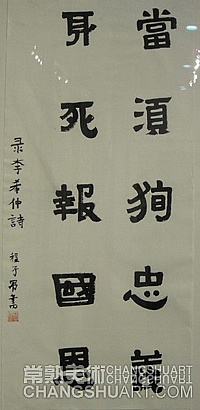 當須狥忠義
身死報國恩
录李希仲詩
常熟美術 CHANGSHUART
CHANGSHUART.COM